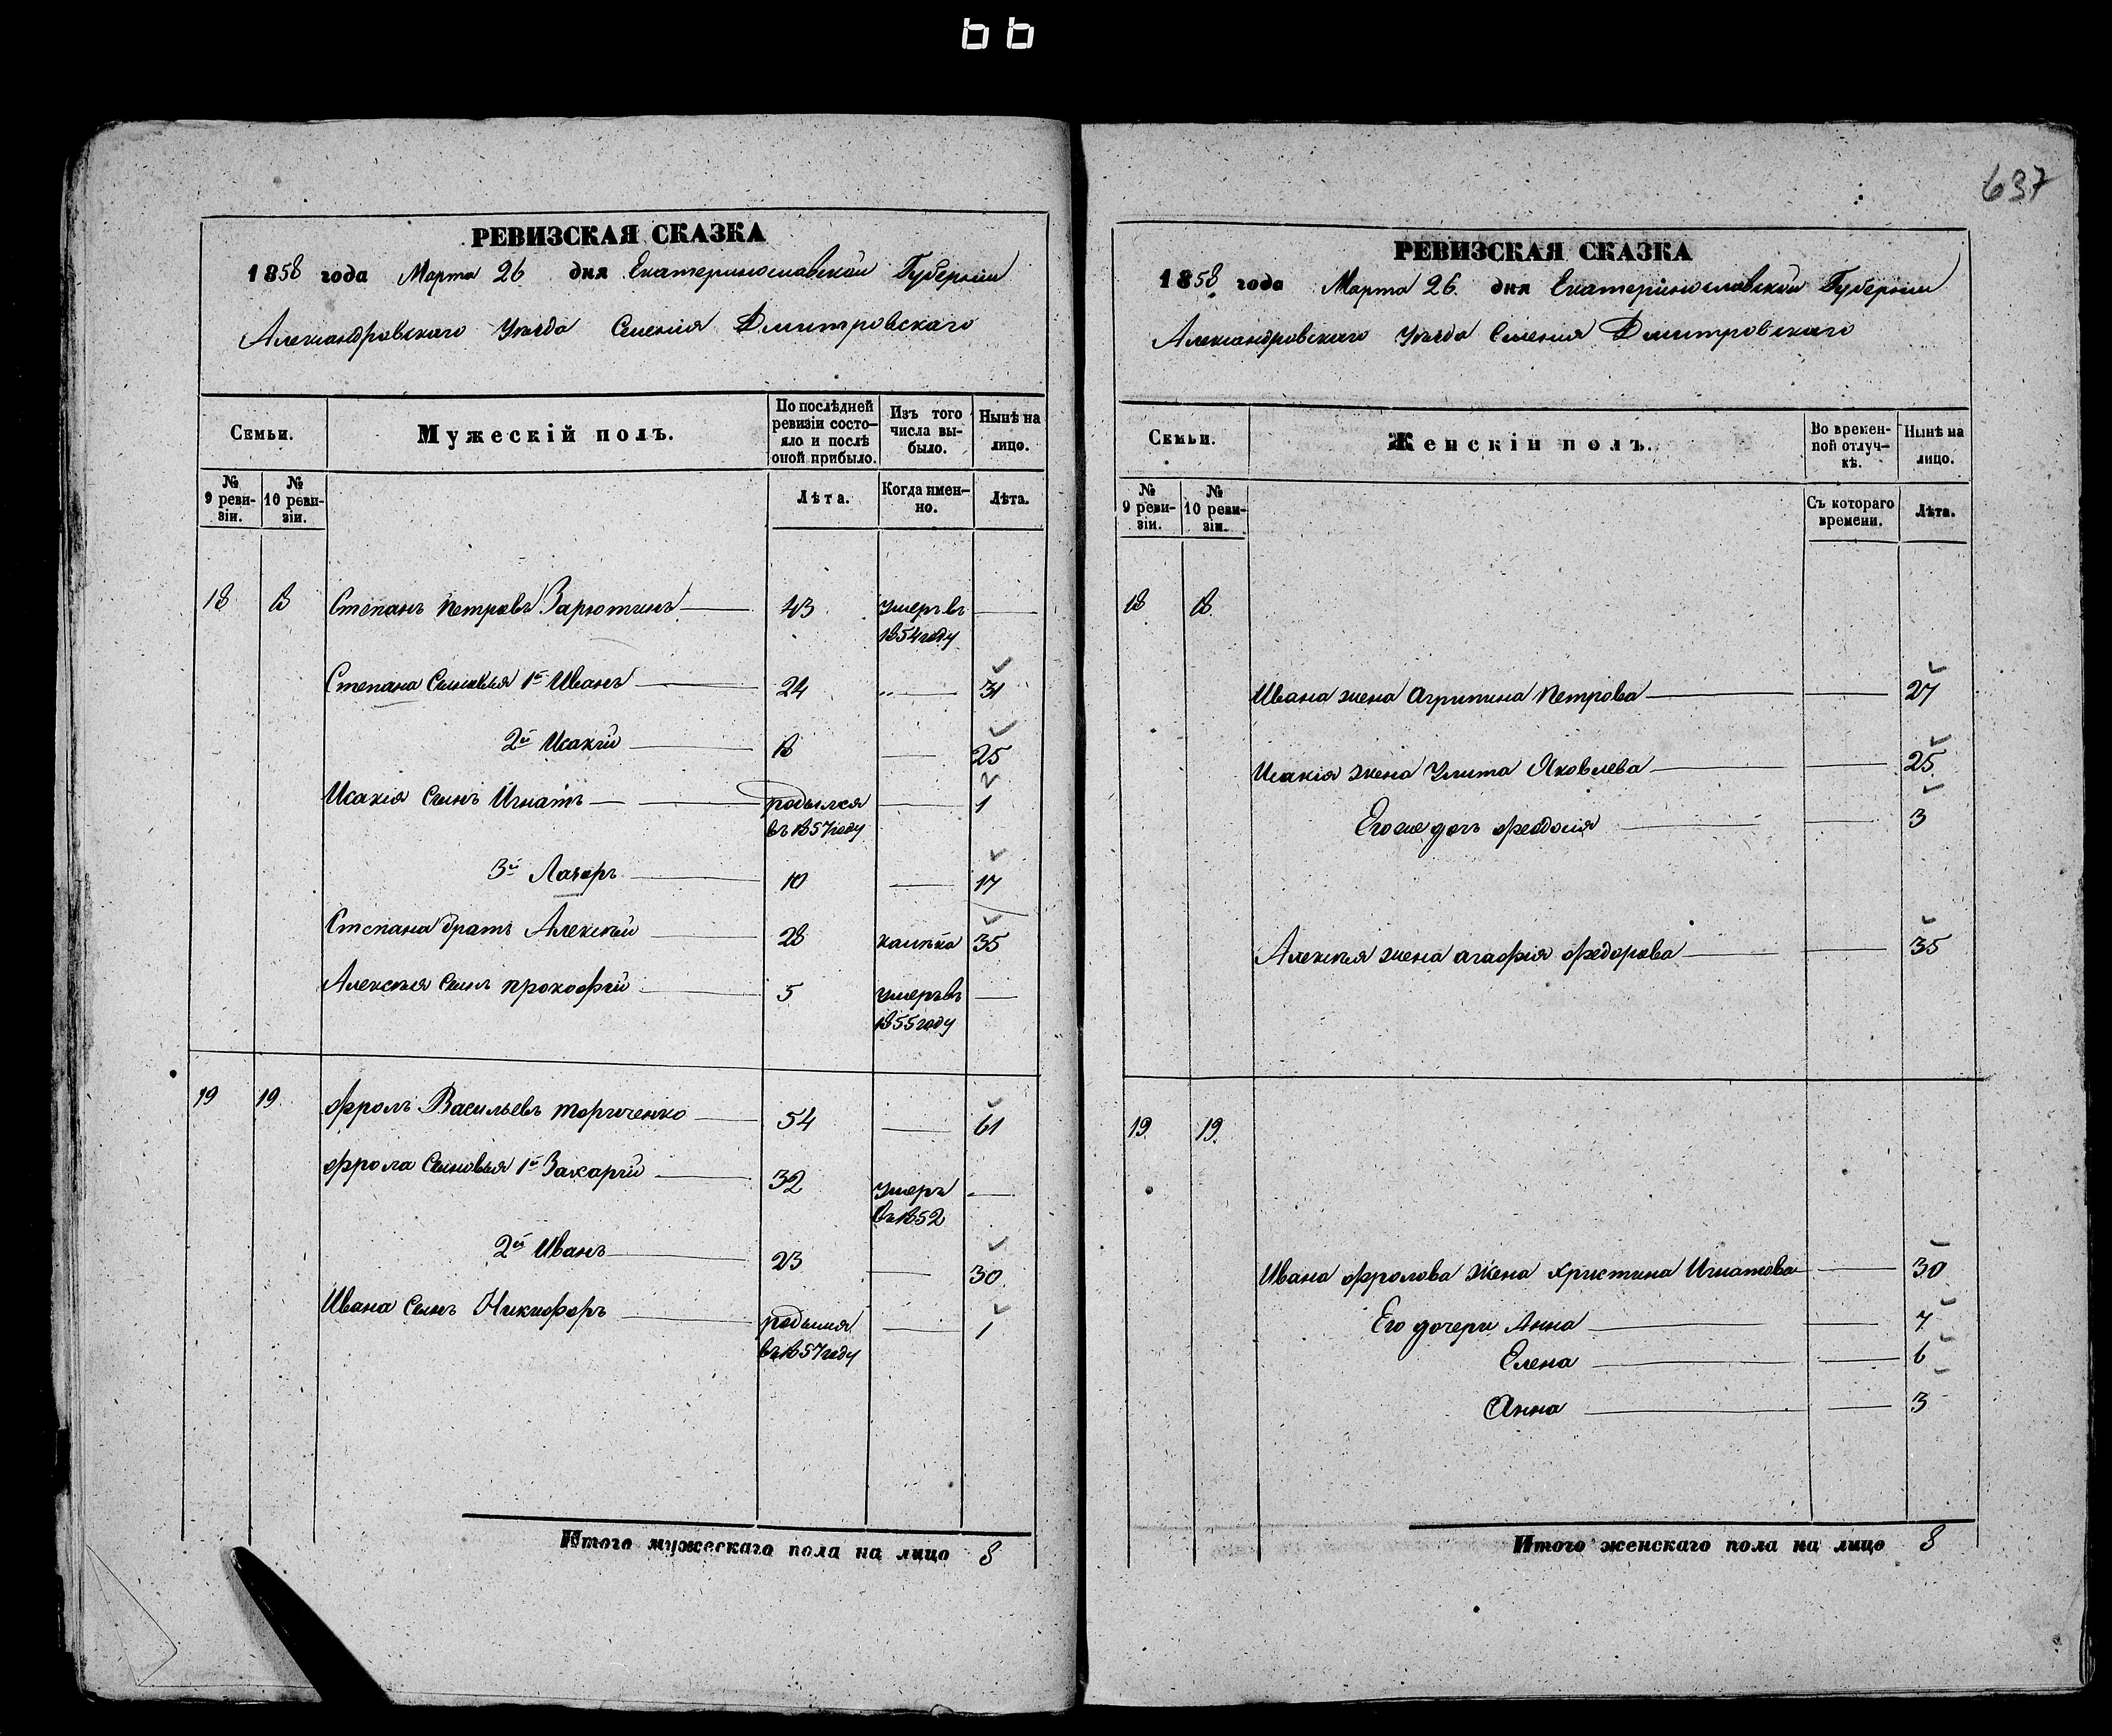 637
РЕВИЗСКАЯ СКАЗКА
1858 года Марта 26 дня Екатеринославской Губерніи
Александровскаго Уѣзда Селенія Дмитровскаго
Семьи.
Мужескій полъ.
По послѣдней ревизіи состо-
яло и послѣ оной прибыло.
Изъ того числа вы-
было.
Нынѣ на лицо.
№ 9 реви-
зіи.
№ 10 реви-
зіи.
Лѣта.
Когда имен-
но.
Лѣта.
18 18 Степанъ Петровъ 43 умеръ въ
1854 году
Степана Сыновья 1й Иванъ 24 31
2й Исакій 18 25
Исакія Сынъ Игнатъ родился 1
въ 1857 году
3й Лазарь 10 17
Степана братъ Алексѣй 28 35
Алексѣя Сынъ прокофій 5 умеръ въ
1855 году
19 19 Фролъ Васильевъ 54 61
Фрола Сыновья 1й Захарій 32 умеръ
въ 1852
2й Иванъ 23 30
Ивана Сынъ Никифоръ родился 1
въ 1857 году
Итого мужескаго пола на лицо 8
РЕВИЗСКАЯ СКАЗКА
1858 года Марта 26 дня Екатеринославской Губерніи
Александровскаго Уѣзда Селенія Дмитровскаго
Семьи.
Женскій полъ.
Во времен-
ной отлуч-
кѣ.
Нынѣ на лицо.
№ 9 реви-
зіи.
№ 10 реви-
зіи.
Съ котораго времени.
Лѣта.
18 18
Ивана жена Агрипина Петрова 27
Исакія жена Улита Яковлева 25
Его же дочь Феодосія 3
Алексѣя жена агафія Федорова 35
19 19
Ивана Фролова жена Христина Игнатова 30
Его дочери Анна 7
Елена 6
Анна 3
Итого женскаго пола на лицо 8